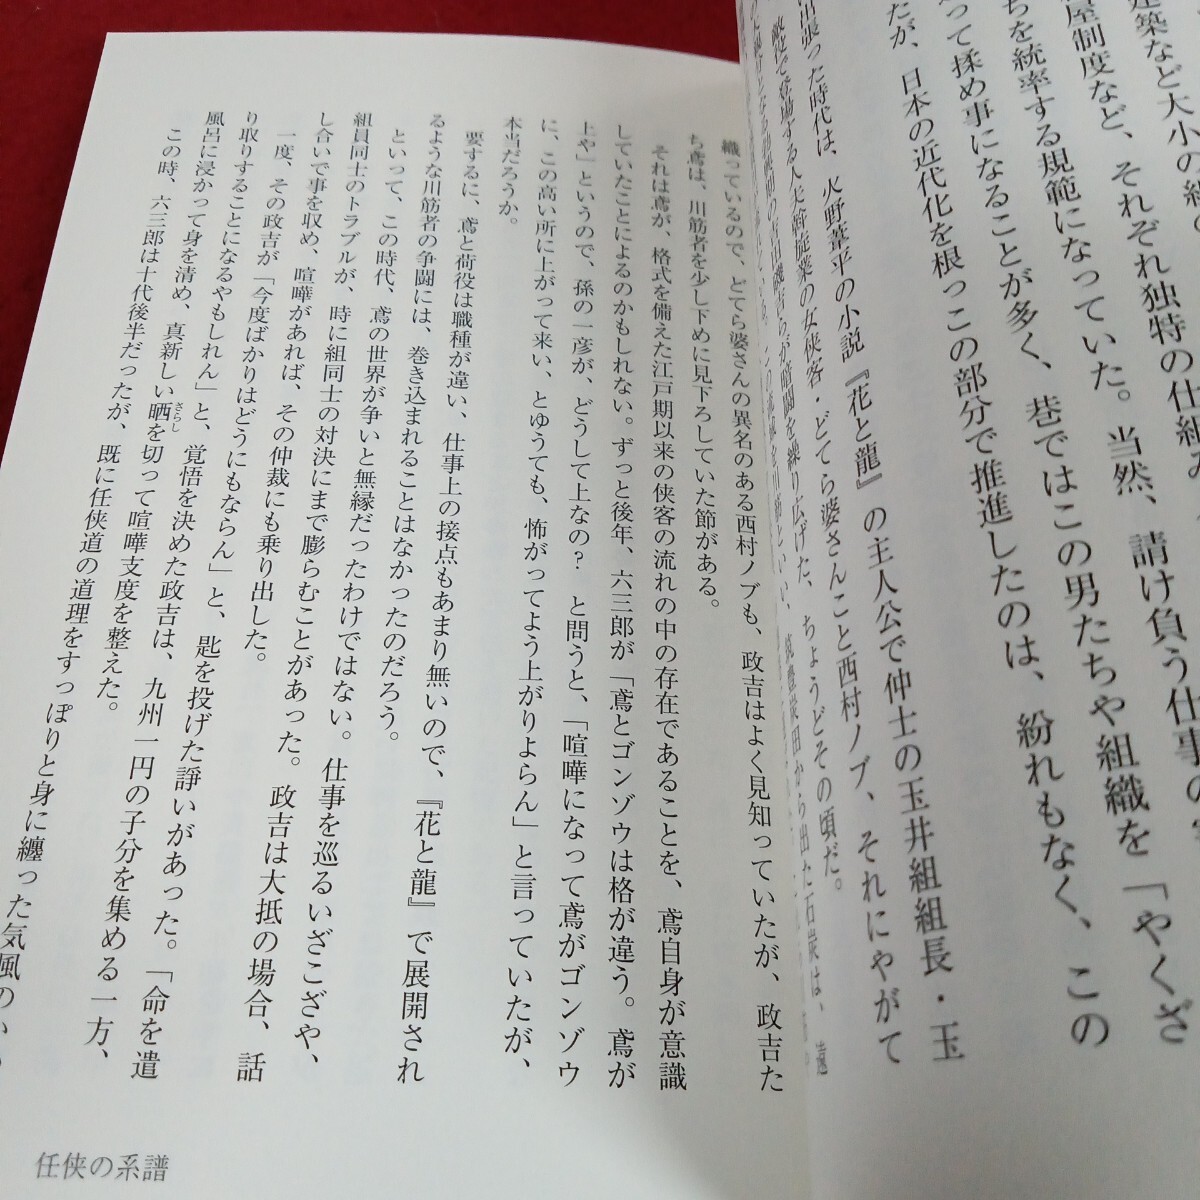 建築など大小の組
屋制度など、それぞれ独特の仕組み
ちを統率する規範になっていた。当然、請け負う仕事の
って揉め事になることが多く、巷ではこの男たちや組織を「やくざ
たが、日本の近代化を根っこの部分で推進したのは、紛れもなく、この
出張った時代は、火野葦平の小説『花と龍』の主人公で仲士の玉井組組長・玉
敵役で登場する人夫幹旋業の女侠客・どてら婆さんこと西村ノブ、それにやがて
吉田磯吉らが暗闘を繰り広げた、ちょうどその頃だ。
筑豊炭田から出た石炭は、遠
織っているので、どてら婆さんの異名のある西村ノブも、政吉はよく見知っていたが、政吉た
ち鳶は、川筋者を少し下めに見下ろしていた節がある。
それは鳶が、格式を備えた江戸期以来の侠客の流れの中の存在であることを、鳶自身が意識
していたことによるのかもしれない。ずっと後年、六三郎が「鳶とゴンゾウは格が違う。鳶が
上や」というので、孫の一彦が、どうして上なの? と問うと、「喧嘩になって鳶がゴンゾウ
に、この高い所に上がって来い、とゆうても、怖がってよう上がりよらん」と言っていたが、
本当だろうか。
要するに、鳶と荷役は職種が違い、仕事上の接点もあまり無いので、『花と龍』で展開され
るような川筋者の争闘には、巻き込まれることはなかったのだろう。
といって、この時代、鳶の世界が争いと無縁だったわけではない。仕事を巡るいざこざや、
組員同士のトラブルが、時に組同士の対決にまで膨らむことがあった。政吉は大抵の場合、話
し合いで事を収め、喧嘩があれば、その仲裁にも乗り出した。
一度、その政吉が「今度ばかりはどうにもならん」と、匙を投げた諍いがあった。「命を遣
り取りすることになるやもしれん」と、覚悟を決めた政吉は、九州一円の子分を集める一方、
風呂に浸かって身を清め、真新しい晒を切って喧嘩支度を整えた。
さらし
この時、六三郎は十代後半だったが、既に任侠道の道理をすっぽりと身に纏った気風の
任侠の系譜